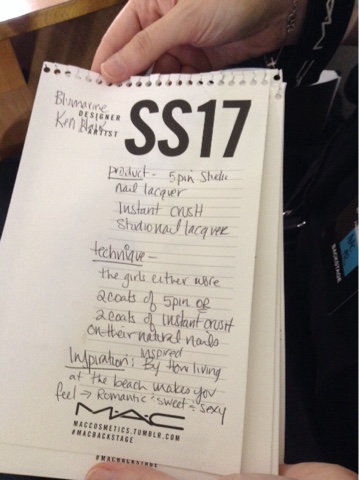 Blumarine
DESIGNER
Ken
ARTIST
SS17
product - 5pin Studio
nail lacquer
Instant crush
Studio nail lacquer
technique -
the girls either wore
2 coats of 5pin OR
2 coats of Instant crush
on their natural nails
inspired
Inspiration: By How living
at the beach makes you
feel → Romantic, sweet, sexy
MAC
MACCOSMETICS.TUMBLR.COM
#MACBACKSTAGE
#MACBACKSTAGE
MAC
BACKSTAGE